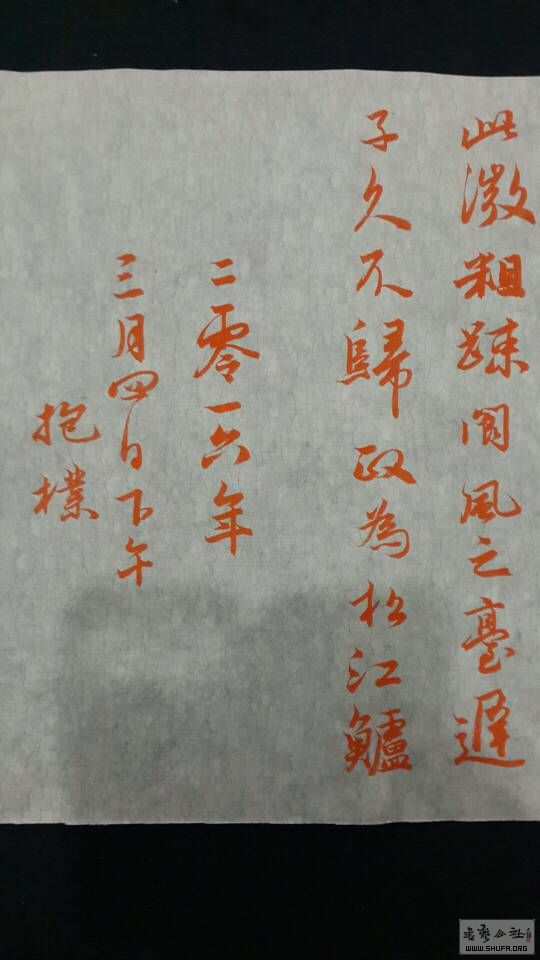 此澂粗疎閬風之臺遲
子久不歸政為松江鱸
二零一六年
三月四日下午
抱樸
书艺公社
WWW.SHUFA.ORG